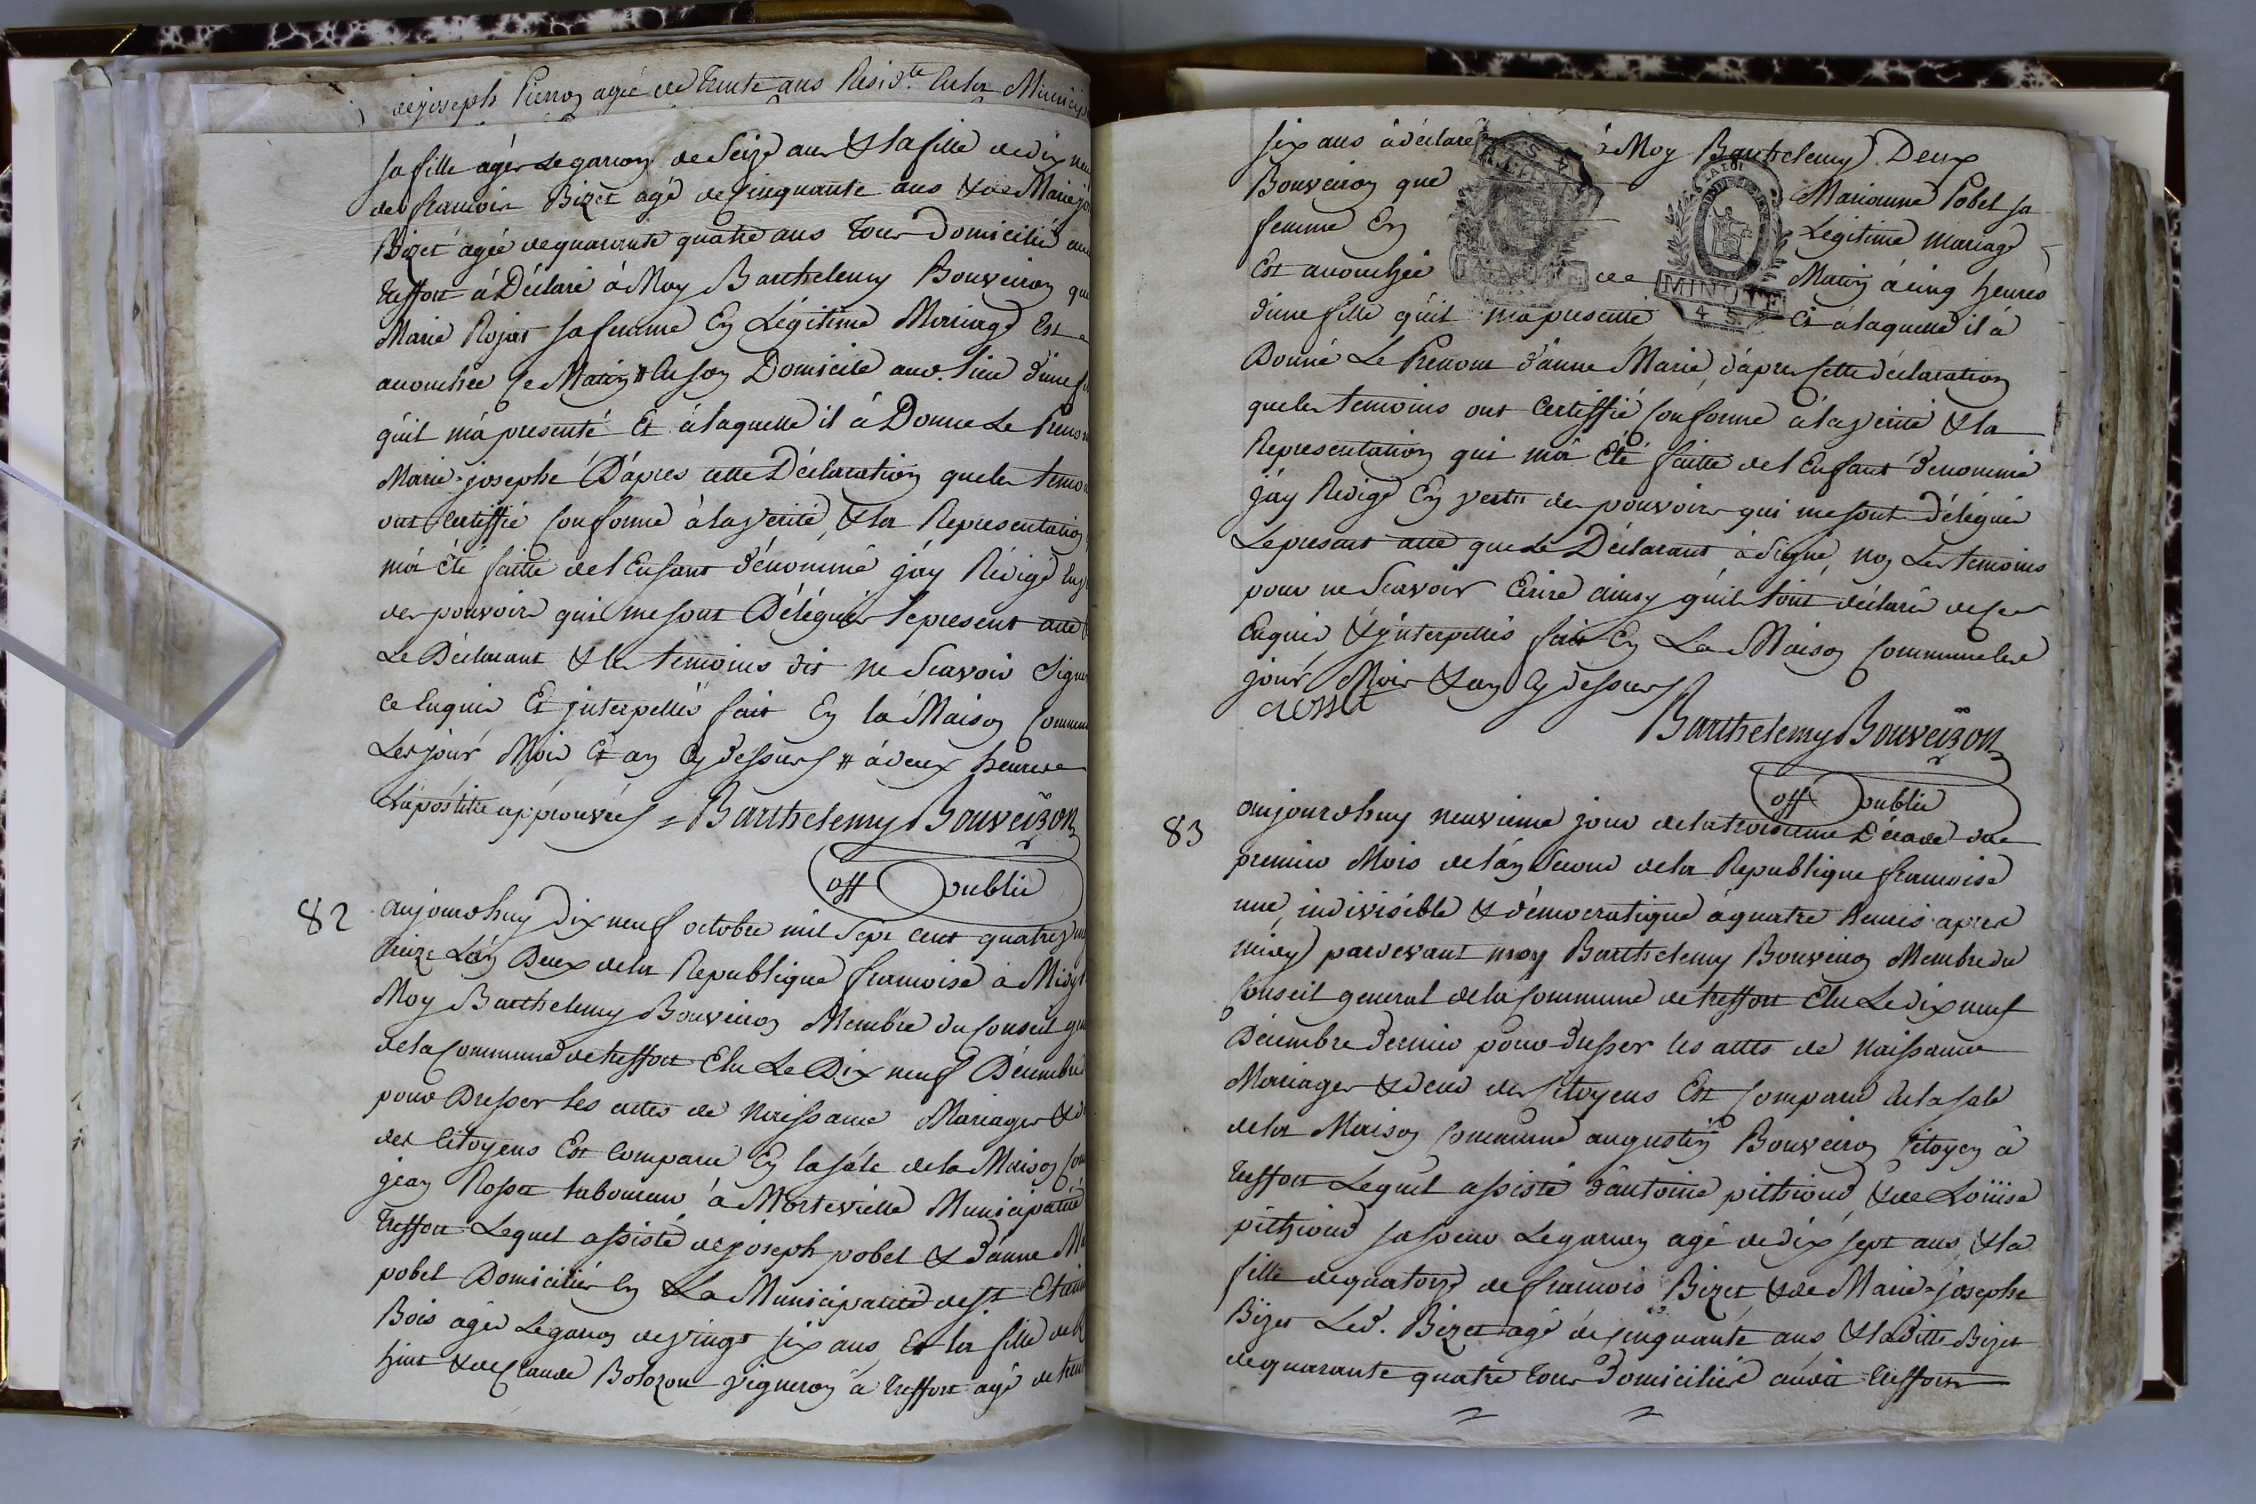 de joseph Pierroz agée de trente ans Resid.te En la Municip
sa fille agés Le garcon de Seize ans & la fille de dix neu
de francois Bizet agé de Cinquante ans & de Marie jo
Bizet agée de quarante quatre ans tous Domicilié aud
treffort à Déclaré à Moy Barthelemy Bouveiron que
Marie Rojat sa femme En Légitime Mariage Est
accouchée Ce Matin # En son Domicile aud. lieu d'une fi
qu'il m'a presenté Et à laquelle il à Donné Le Preno
Marie-josephe D'après cette Déclaration que les temo
ont Certiffié Conforme à la verité, & la Representation
m'à été faitte de l'Enfant dénommé j'ay Rédigé En
des pouvoirs qui me sont Délégués Le present acte
Le Déclarant & les temoins dit ne Scavoir Signe
Ce Enquis Et jnterpellés fait En la Maison Commu
Les jour Mois Et an Cy dessus # à deux heures
L'apostille approuvée = Barthelemy Bouveiron
off publié
82
aujourdhuy Dix neuf octobre mil Sept Cent quatre v
treize L'an Deux de la Republique francoise à Midy
Moy Barthelemy Bouveiron Membre du Conseil g
de la Commune de treffort Elu Le Dix neuf Décembre
pour Dresser les actes de Naissance Mariages & d
des Citoyens Est Comparu En la sale de la Maison Com
jean Rosset laboureur à Mortevielle Municipalité
treffort Lequel assisté de joseph pobel & d'anne M
pobel Domiciliés En La Municipalité de St. Etien
Bois agés Le garcon de vingt six ans Et la fille de
huit & de Claude Bolozon vigneron à treffort agé de tren
six ans à déclaré à Moy Barthelemy Deux
Bouveiron que Marianne Pobel sa
femme En Légitime Mariage
Est accouchée ce Matin à cinq heures
d'une fille qu'il m'a presenté Et à laquelle il à
LA LOI
MINUTE
4 S.
Donné Le Prenom d'anne Marie, d'après Cette déclaration
que les temoins ont Certiffié Conforme à la verité & la
Representation qui m'à Eté faitte de l'Enfant dénommé
j'ay Redigé En vertu des pouvoirs qui me sont délégués
Le present acte que Le Déclarant à Signé, non Les temoins
pour ne Scavoir Ecrire ainsy qu'ils l'ont déclaré de Ce
Enquis, & jnterpellés fait En La Maison Commune les
jour Mois & an Cy dessus
Barthelemy Bouveiron
off publié
83
aujourdhuy neuvieme jour de la troisieme Décade du
premier Mois de l'an Second de la Republique francoise
une, indivisible & démocratique à quatre heures apres
midy pardevant moy Barthelemy Bouveiron Membre du
Conseil general de la Commune de treffort Elu Le dix neuf
Décembre dernier pour dresser les actes de Naissance
Mariages & décé des Citoyens Est Comparu En la sale
de la Maison Commune augustin Bouveiron Citoyen à
treffort Lequel assisté d'antoine pithioud, & de Loüise
pithioud sa soeur Le garcon agé de dix sept ans, & la
fille de quatorze de francois Bizet & de Marie-josephe
Bizet Led. Bizet agé de Cinquante ans, & laditte Bizet
de quarante quatre tous domiciliés audit treffort